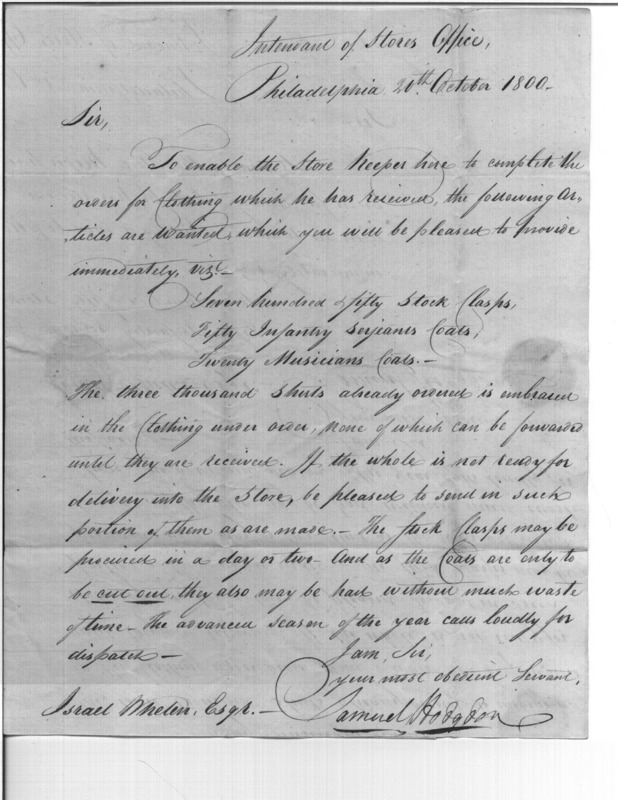 Intendant of Stores Office,
Philadelphia 20th October 1800-
Sir,
To enable the Store Keeper here to complete the
orders for Clothing which he has received, the following Ar=
=ticles are Wanted, which you will be pleased to provide
immediately, vizt-
Seven hundred & fifty Stock Clasps,
Fifty Infantry Serjeants Coats,
Twenty Musicians Coats.-
The three thousand Shirts already ordered is embraced
in the Clothing under order, none of which can be forwarded
until they are received. If the whole is not ready for
delivery into the Store, be pleased to send in such
portion of them as are made.- The Stock Clasps may be
procured in a day or two- And as the Coats are only to
be cut out, they also may be had without much waste
of time- The advanced season of the year calls loudly for
dispatch-
I am, Sir,
your most obedient Servant,
Israel Whelen, Esqr.-
Samuel Hodgdon